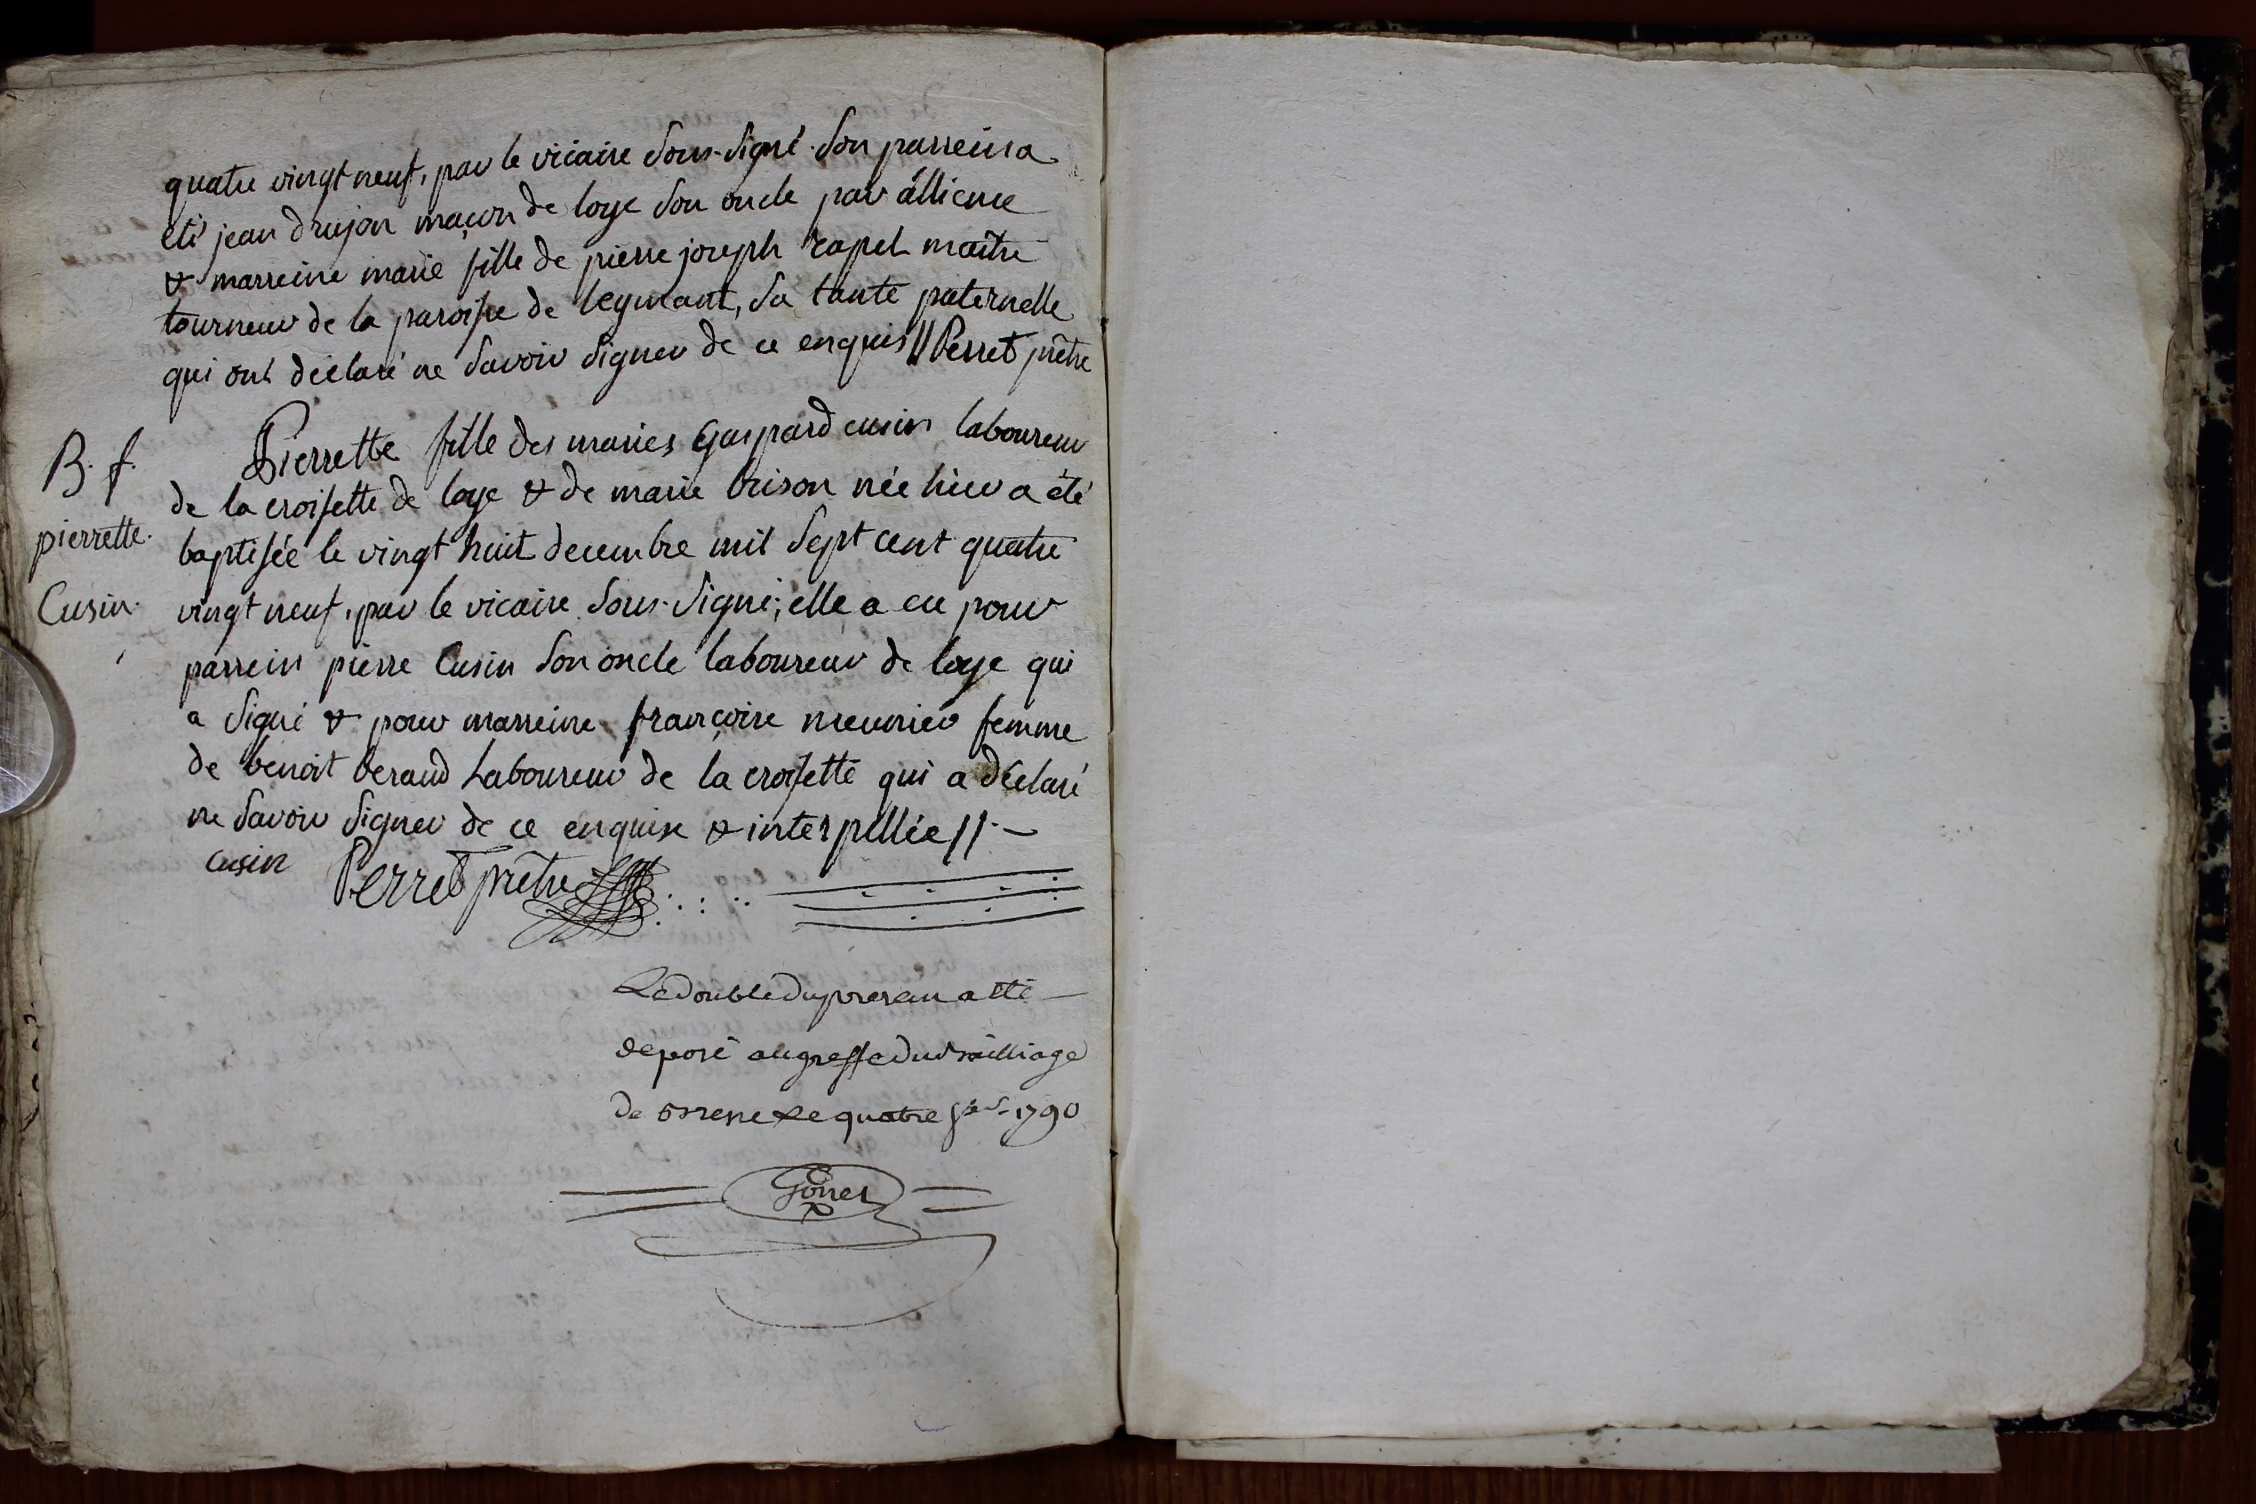 quatre vingt neuf, par le vicaire Sous-Signé. Son parrein a
été jean drujon maçon de loye Son oncle par allience
& marreine marie fille de pierre joseph rapet maitre
tourneur de la paroisse de leymant, Sa tante paternelle
qui ont déclaré ne Savoir Signer de ce enquis // Perret prêtre
B. f.
pierrette
Cusin
Pierrette fille des mariés Gaspard cusin laboureur
de la croisette de loye & de marie brison née hier a été
baptisée le vingt huit decembre mil Sept cent quatre
vingt neuf, par le vicaire Sous-Signé; elle a eu pour
parrein pierre Cusin Son oncle laboureur de loye qui
a Signé & pour marreine françoise meunier femme
de benoit beraud Laboureur de la croisette qui a déclaré
ne Savoir Signer de ce enquise & interpellée //. —
cusin Perret prêtre
Le double du presen a été
deposé au greffe du Bailliage
de le quatre 1790